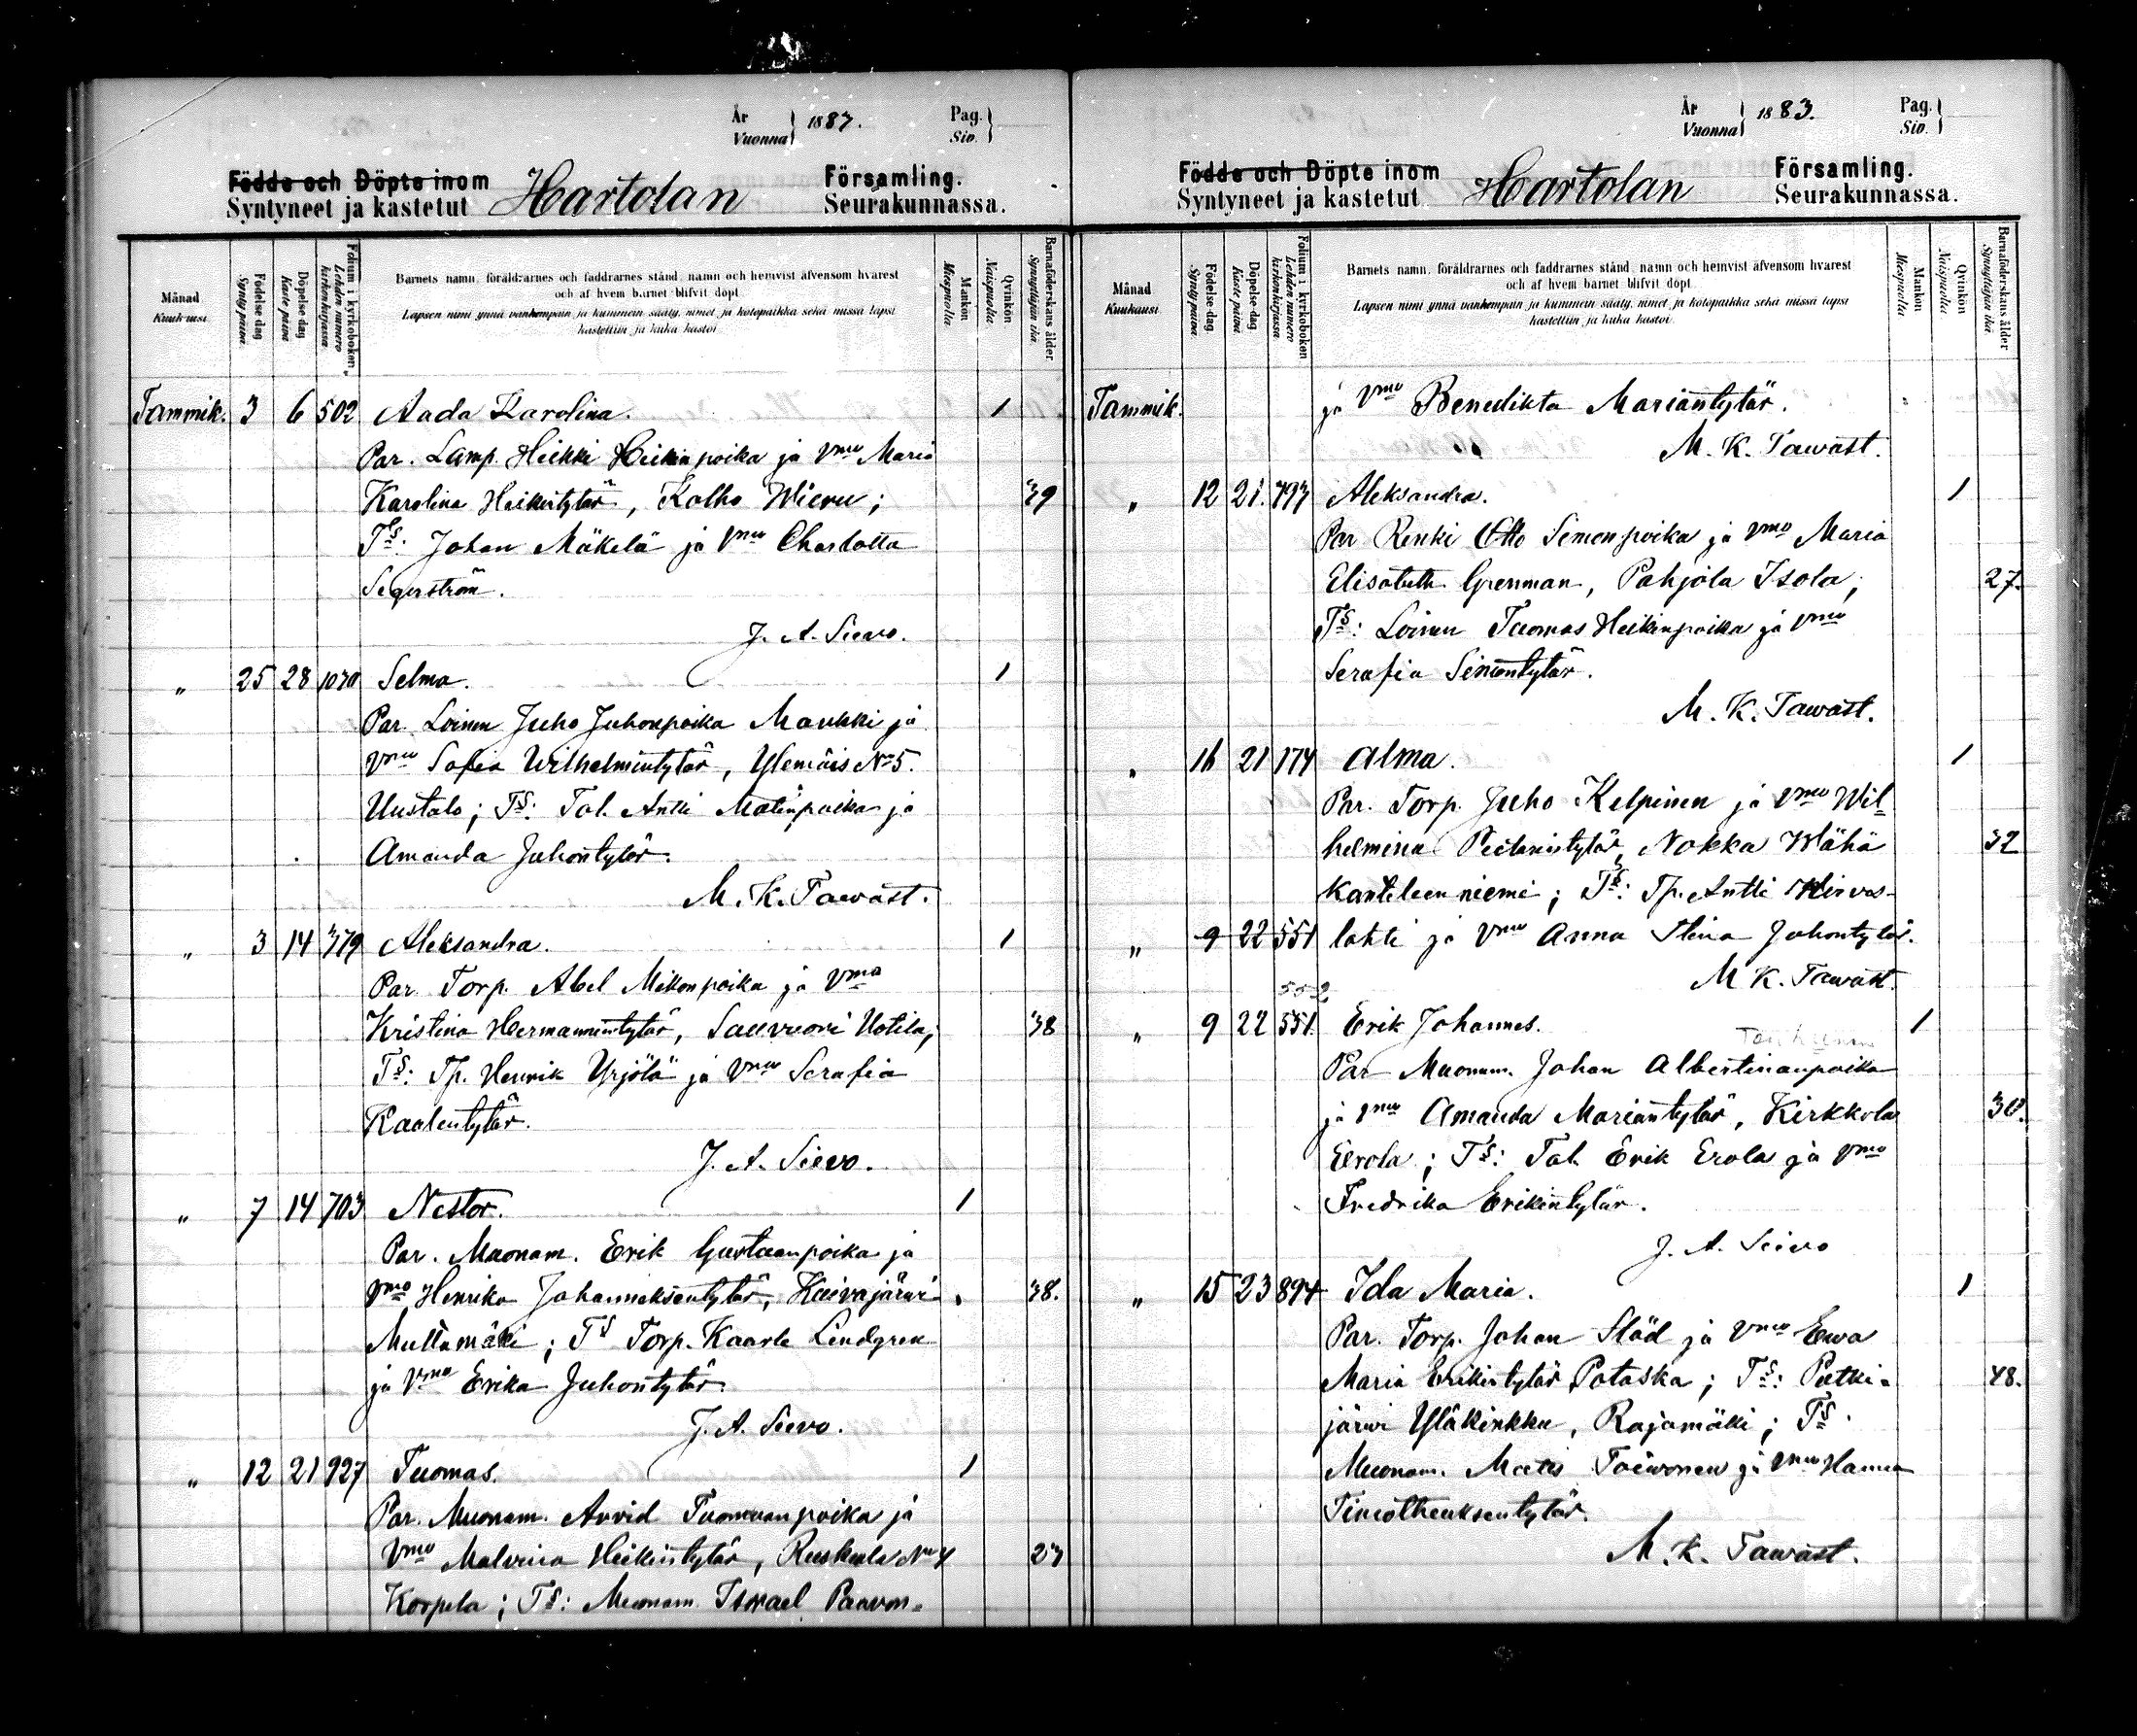 År
Vuonna } 1883.
Pag.
Siv. }
Födde och Döpte inom
Syntyneet ja kastetut
Hartolan
Församling.
Seurakunnassa.
Månad
Kuukausi
Födelse dag
Synty päivä
Döpelse dag
Kaste päivä
Folium i kyrkoboken
Lehden numero kirkonkirjassa
Barnets namn, föräldrarnes och faddrarnes stånd, namn och hemvist äfvensom hvarest
och af hvem barnet blifvit döpt.
Lapsen nimi ynnä vanhempain ja kummein sääty, nimet ja kotopaikka sekä missä lapsi
kastettiin ja kuka kastoi.
Mankön
Miespuolia
Qvinkön
Naispuolia
Barnaföderskans ålder
Synnyttäjän ikä
Tammik. 3 6 502 Aada Karolina. 1
Par. Lamp. Heikki Heikinpoika ja Vmo Maria
Karolina Heikintytär, Kalho Wieru; 39
T§: Johan Mäkelä ja Vmo Charlotta
Segerström.
J. A. Sievo.
" 25 28 1070 Selma. 1
Par. Loinen Juho Juhonpoika Maukki ja
Vmo Sofia Wilhelmintytär, Ylemäis No 5.
Uustalo; T§: Tal. Antti Matinpoika ja
Amanda Juhontytär.
M. K. Tawast.
" 3 14 379 Aleksandra. 1
Par. Torp. Abel Mikonpoika ja Vmo
Kristina Hermannintytär, Sauvuori Uotila; 38
T§: Tp. Henrik Yrjölä ja Vmo Serafia
Kaalentytär.
J. A. Sievo.
" 7 14 703 Nestor. 1
Par. Muonam. Erik Gustaanpoika ja
Vmo Henrika Johanneksentytär, Kuivajärwi 38.
Multamäki; T§ Torp. Kaarle Lindgren
ja Vmo Erika Juhontytär.
J. A. Sievo.
" 12 21 927 Tuomas. 1
Par. Muonam. Arvid Tuomaanpoika ja
Vmo Malvina Heikintytär, Ruskeala No 4 27
Korpela; T§: Muonam. Israel Paavon-
År
Vuonna } 1883.
Pag.
Siv. }
Födde och Döpte inom
Syntyneet ja kastetut
Hartolan
Församling.
Seurakunnassa.
Månad
Kuukausi
Födelse-dag
Synty päivä
Döpelse-dag
Kaste päivä
Folium i kyrkoboken
Lehden numero kirkonkirjassa
Barnets namn, föräldrarnes och faddrarnes stånd, namn och hemvist äfvensom hvarest
och af hvem barnet blifvit döpt.
Lapsen nimi ynnä vanhempain ja kummein sääty, nimet ja kotopaikka sekä missä lapsi
kastettiin ja kuka kastoi.
Mankön
Miespuolia
Qvinkön
Naispuolia
Barnaföderskans ålder
Synnyttäjän ikä
Tammik. ja Vmo Benedikta Mariantytär.
M. K. Tawast.
" 12 21. 797 Aleksandra. 1
Par Renki Otto Simonpoika ja Vmo Maria
Elisabeth Grenman, Pohjola Isola; 27.
T§: Loinen Tuomas Heikinpoika ja Vmo
Serafia Simontytär.
M. K. Tawast.
" 16 21 174 Alma. 1
Par. Torp. Juho Kelpinen ja Vmo Wil-
helmina Pietarintytär, Nokka Wähä 32
Kanteleenniemi; T§: Tp. Antti Hirvas-
" 9 22 551 lahti ja Vmo Anna Stina Juhontytär.
M K. Tawast.
552
" 9 22 551 Erik Johannes. 1
Par Muonam. Johan Albertinanpoika
ja Vmo Amanda Mariantytär, Kirkkola 30.
Erola; T§: Tal. Erik Erola ja Vmo
Fredrika Erikintytär.
J. A. Sievo
" 15 23 894 Ida Maria. 1
Par. Torp. Johan Stöd ja Vmo Ewa
Maria Erikintytär Pataska; T§: Putki- 48.
järwi Yläkinkku, Rajamäki; T§:
Muonam. Matts Toiwonen ja Vmo Hanna
Timotheuksentytär.
M. K. Tawast.